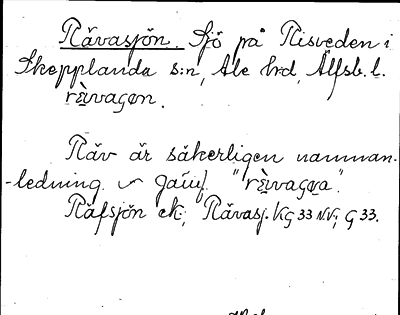 Rävasjön. Sjö på Risveden i
Skepplanda s:n, Ale hrd, Älfsb. l.
rävagen.
Räv är säkerligen namnan-
-ledning. "rävagea".
Räfsjön ek; Rävasj. KG 33 NV; G 33.